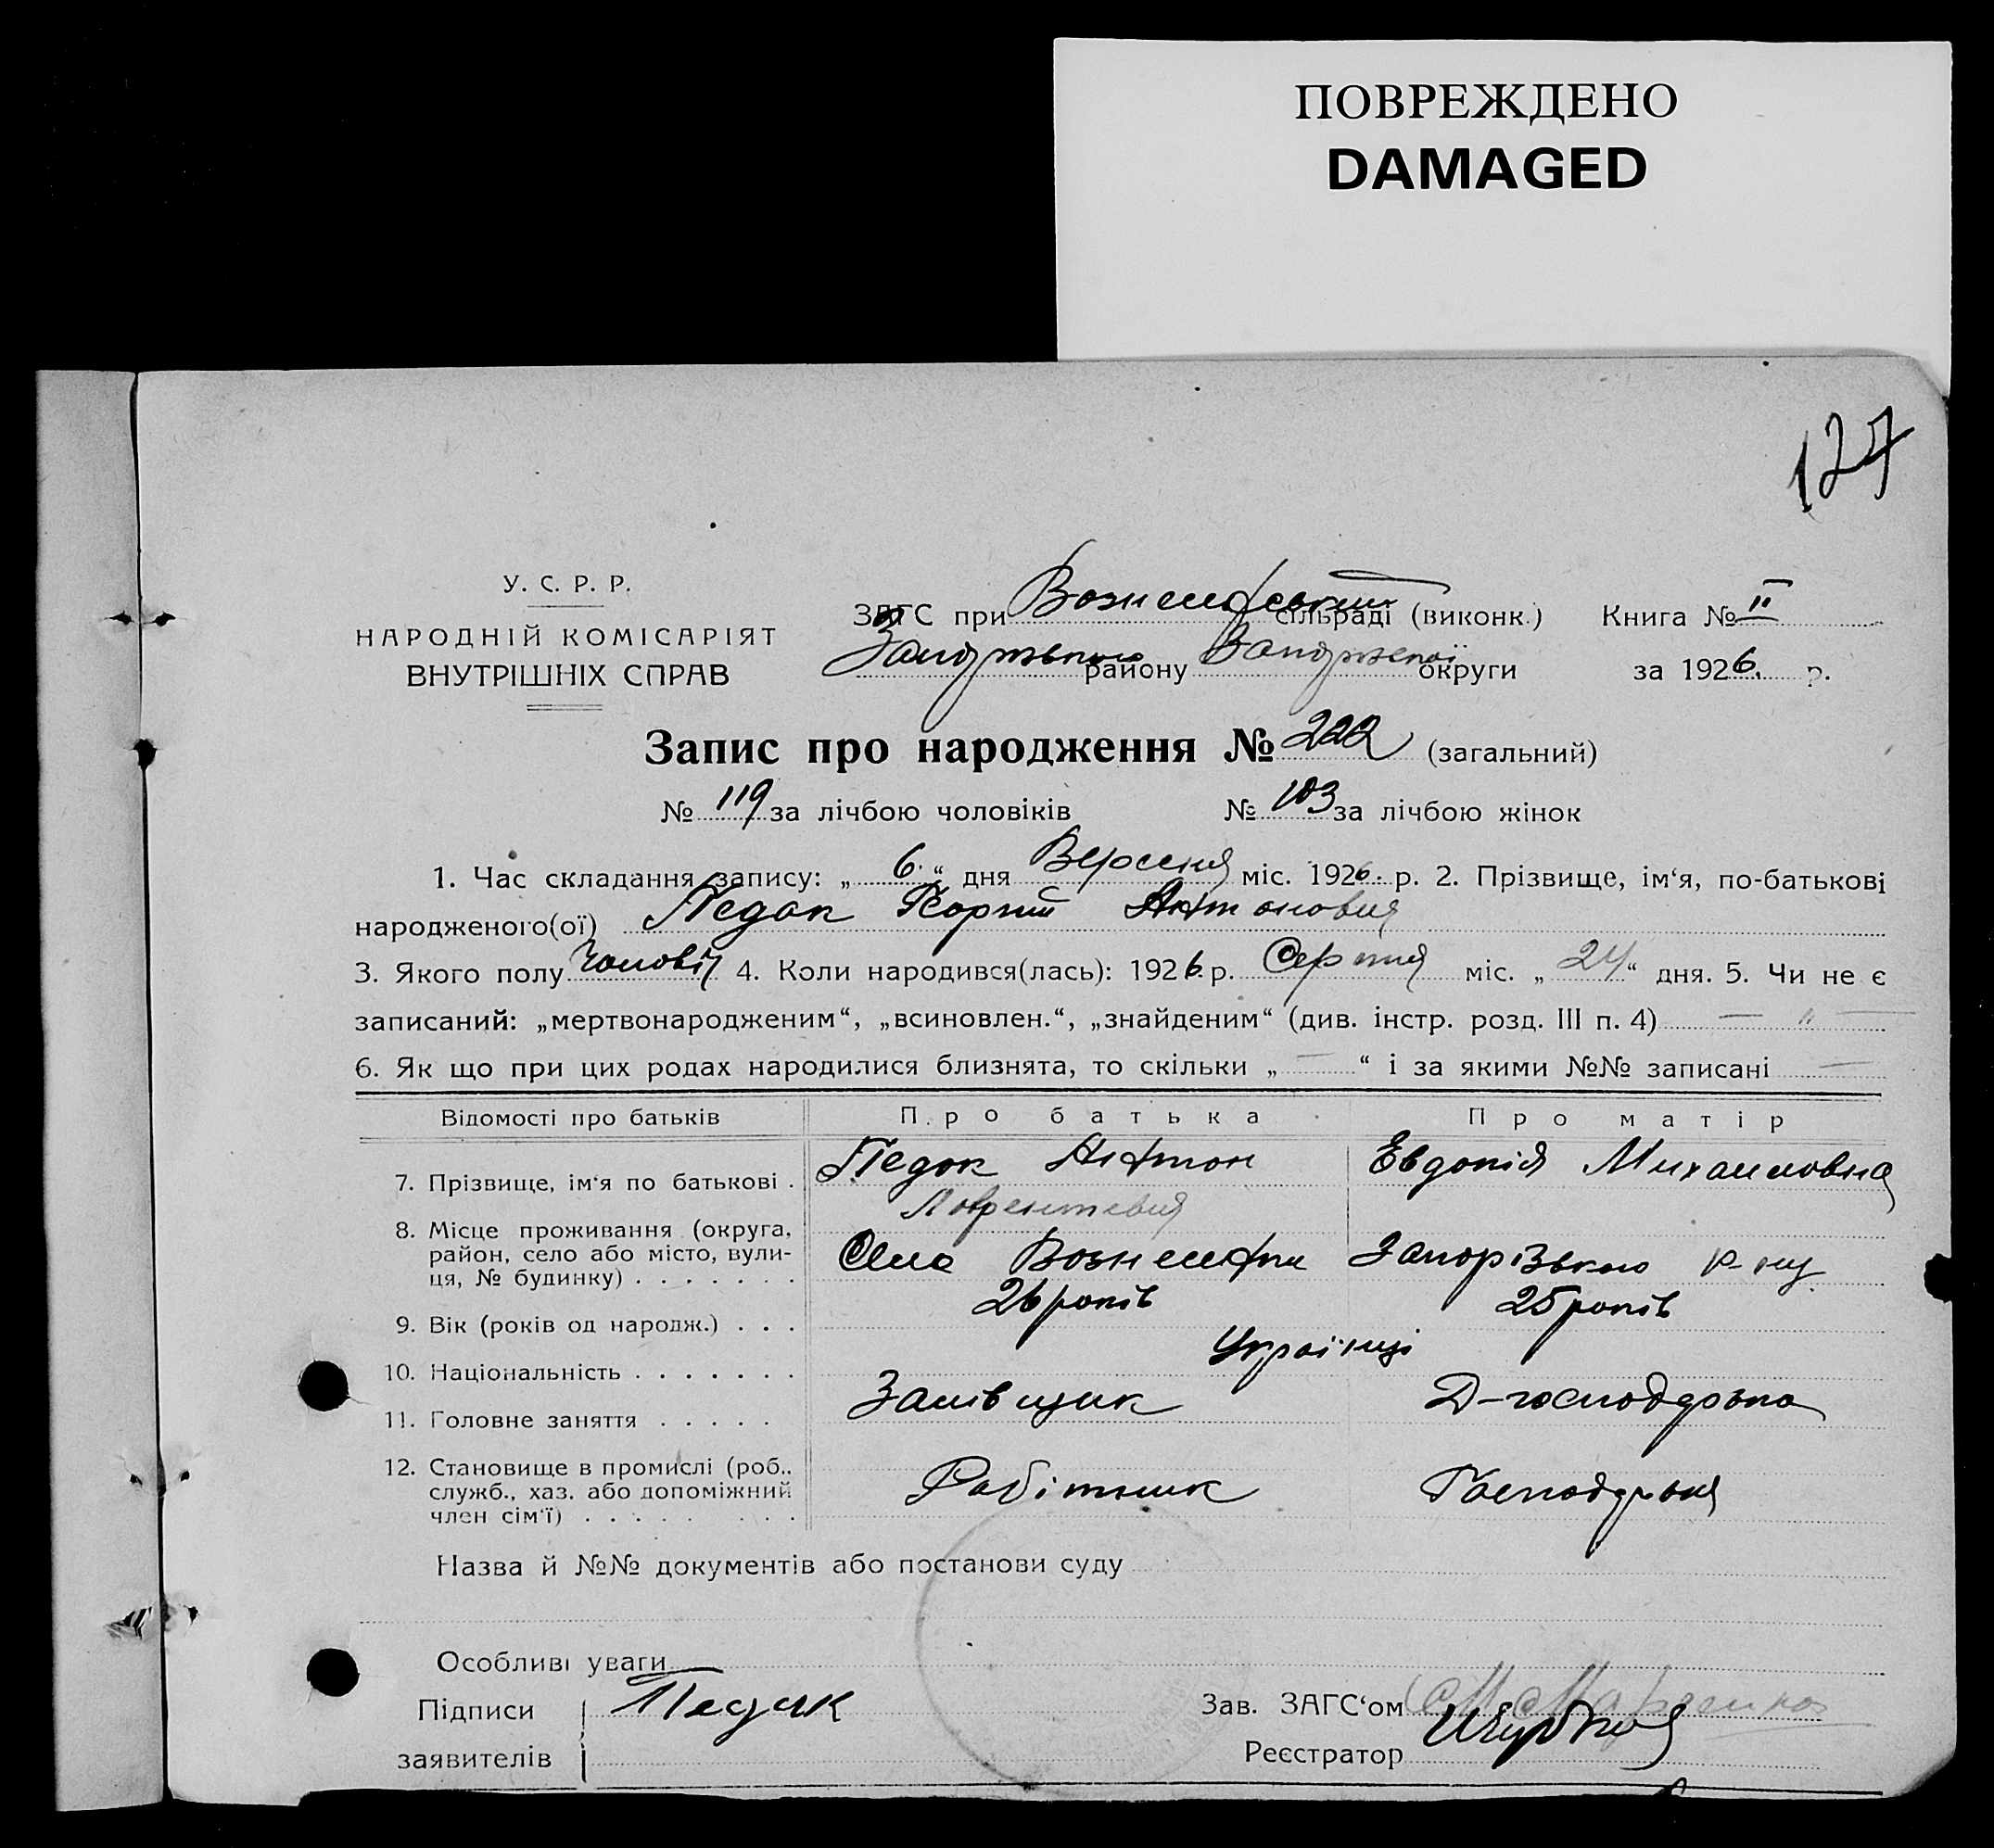 ПОВРЕЖДЕНО
DAMAGED
127
У. С. Р. Р.
НАРОДНІЙ КОМІСАРІЯТ
ВНУТРІШНІХ СПРАВ
ЗАГС при Вознесенській сільраді (виконк.) Книга № II
Запорізького району Запорізької округи за 1926. р.
Запис про народження № 222 (загальний)
№ 119 за лічбою чоловіків № 103 за лічбою жінок
1. Час складання запису: „6“ дня Вересня міс. 1926. р. 2. Прізвище, ім‘я, по-батькові
народженого(ої) Педак Георгій Антонович
3. Якого полу Чоловіч 4. Коли народився(лась): 1926 р. Серпня міс. „24“ дня. 5. Чи не є
записаний: „мертвонародженим“, „всиновлен.“, „знайденим“ (див. інстр. розд. III п. 4) — " —
6. Як що при цих родах народилися близнята, то скільки „—“ і за якими №№ записані —
Відомості про батьків Про батька Про матір
7. Прізвище, ім‘я по батькові . Педак Антон Евдокія Михайловна
Лаврентевич
8. Місце проживання (округа,
район, село або місто, вули-
ця, № будинку) . . . . . . . Село Запорізького р-ну
9. Вік (років од народж.) . . . 26 років 25 років
10. Національність . . . . . . . Українці
11. Головне заняття . . . . . Д-господарка
12. Становище в промислі (роб..
служб., хаз. або допоміжний
член сім‘ї) . . . . . . . . Робітник Господарка
Назва й №№ документів або постанови суду
Особливі уваги
Підписи Педак Зав. ЗАГС‘ом
заявителів Реєстратор